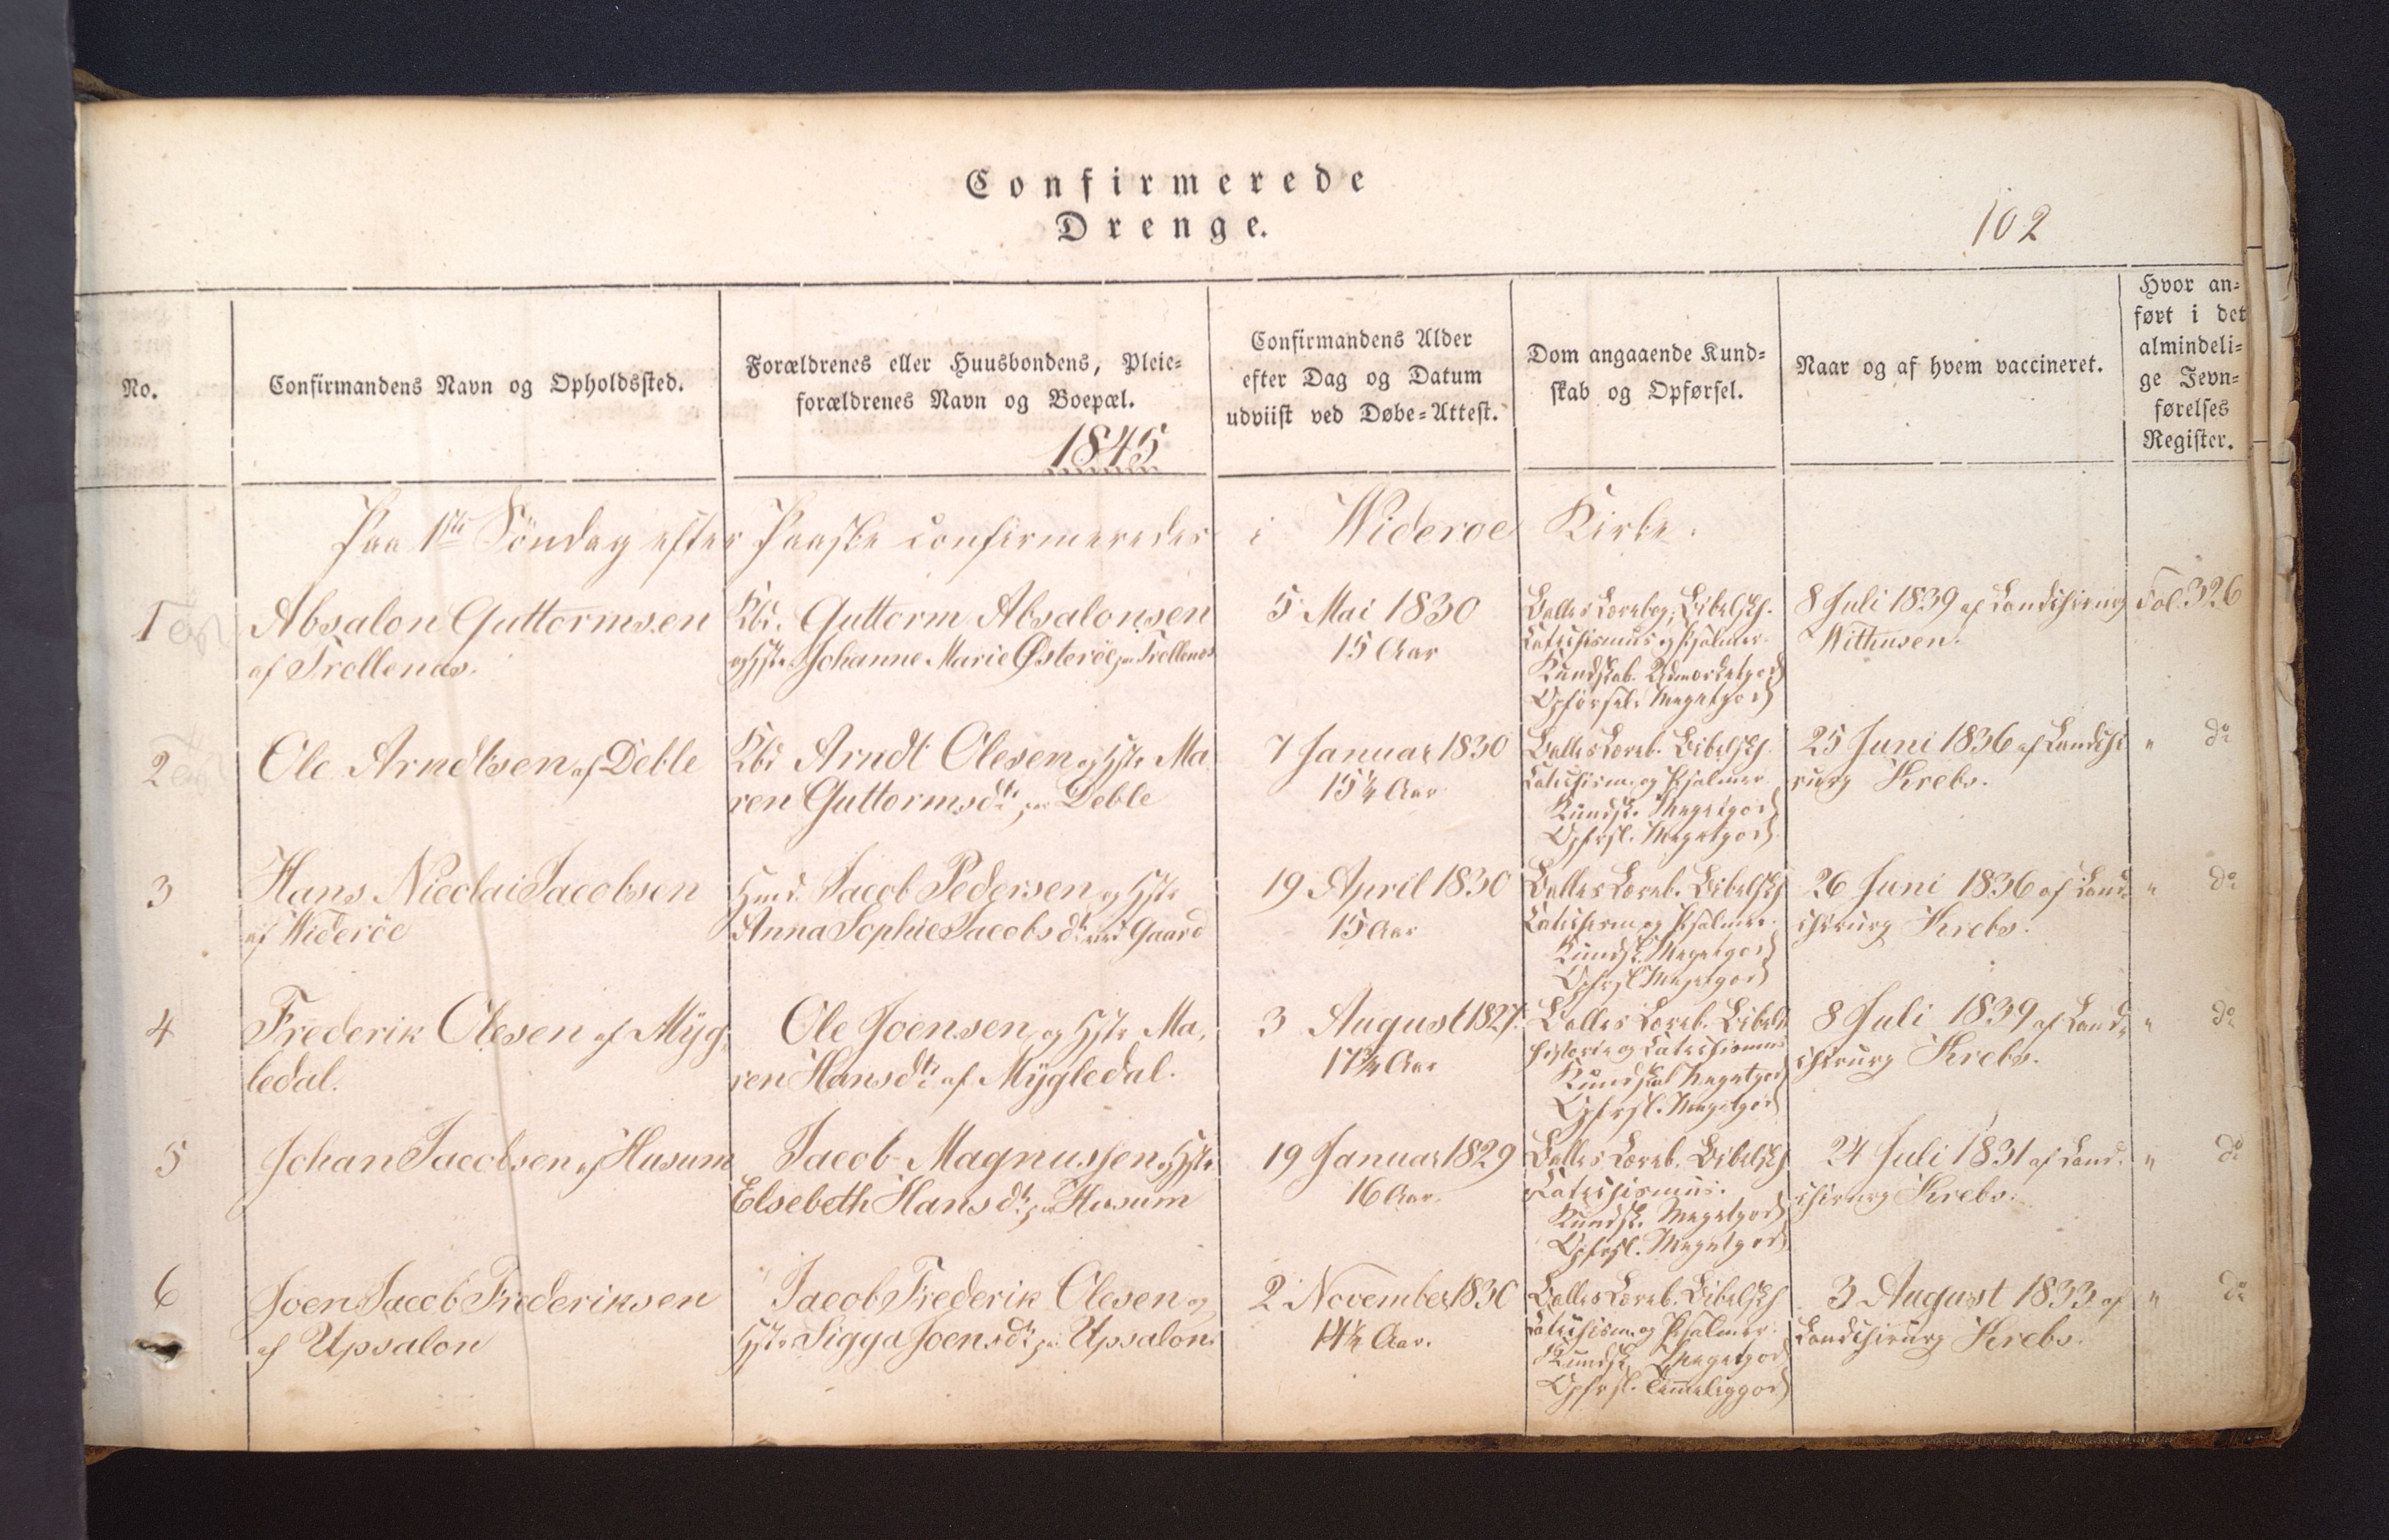 Confirmerede
Drenge.
102
No.
Confirmandens Navn og Opholdssted.
Forældrenes eller Huusbondens, Pleie-
forældrenes Navn og Boepæl.
1845
Confirmandens Alder
efter Dag og Datum
udviist ved Døbe-Attest.
Dom angaaende Kund-
skab og Opførsel.
Naar og af hvem vaccineret.
Hvor an-
ført i det
almindeli-
ge Jevn-
førelses
Register.
Paa 1ste Söndag efter Paaske confirmeredes i Wideroe Kirke.
1
Absalon Guttormsen
af Trollenæs.
Kbd. Guttorm Absalonsen
og Hste Johanne Marie Østeröe paa Trollenæs
5 Mai 1830
15 Aar
Balles Lærebog, Bibelsk.
Catechismus og Psalmer.
Kundskab. Udmærketgod
Opförsel. Megetgod
8 Juli 1839 af Landchirurg
Withusen.
Fol. 326
2
Ole Arndtsen af Deble
Kbd Arndt Olesen og Hste Ma
ren Guttormsdtr paa Deble
7 Januar 1830
15 1/4 Aar
Balles Læreb. Bibelsk.
Catechism. og Psalmer
Kundsk. Megetgod
Opførsl. Megetgod
25 Juni 1836 af Landchi
rurg Krebs.
" do
3
Hans Nicolai Jacobsen
af Wideröe
Jacob Pedersen og Hste
Anna Sophie Jacobsdtr ved Gaard
19 April 1830
15 Aar
Balles Læreb. Bibelsk
Catechism. og Psalmer.
Kundsk. Megetgod
Opførsl Megetgod
26 Juni 1836 af Land-
chirurg Krebs.
" do
4
Frederik Olesen af Myg-
ledal.
Ole Joensen og Hste Ma-
ren Hansdtr af Mygledal.
3 August 1827.
17 3/4 Aar
Balles Læreb. Bibels
historie og Catechismus
Kundskab Megetgod
Opførsl. Megetgod
8 Juli 1839 af Land-
chirurg Krebs.
" do
5
Johan Jacobsen af Husum
Jacob Magnussen og Hste
Elsebeth Hansdtr paa Husum
19 Januar 1829
16 Aar.
Balles Læreb. Bibelsk
Catechismus.
Kundsk. Megetgod
Opførsl. Megetgod
24 Juli 1831 af Land-
chirurg Krebs.
" do
6
Joen Jacob Frederiksen
af Upsalon
Jacob Frederik Olesen og
Hste Sigga Joensdtr paa Upsalon.
2 November 1830
14 1/2 Aar.
Balles Læreb. Bibelsk
Catechism. og Psalmer.
Kundsk. Megetgod
Opførsl. Temmeliggod
3 August 1833 af
Landchirurg Krebs.
" do